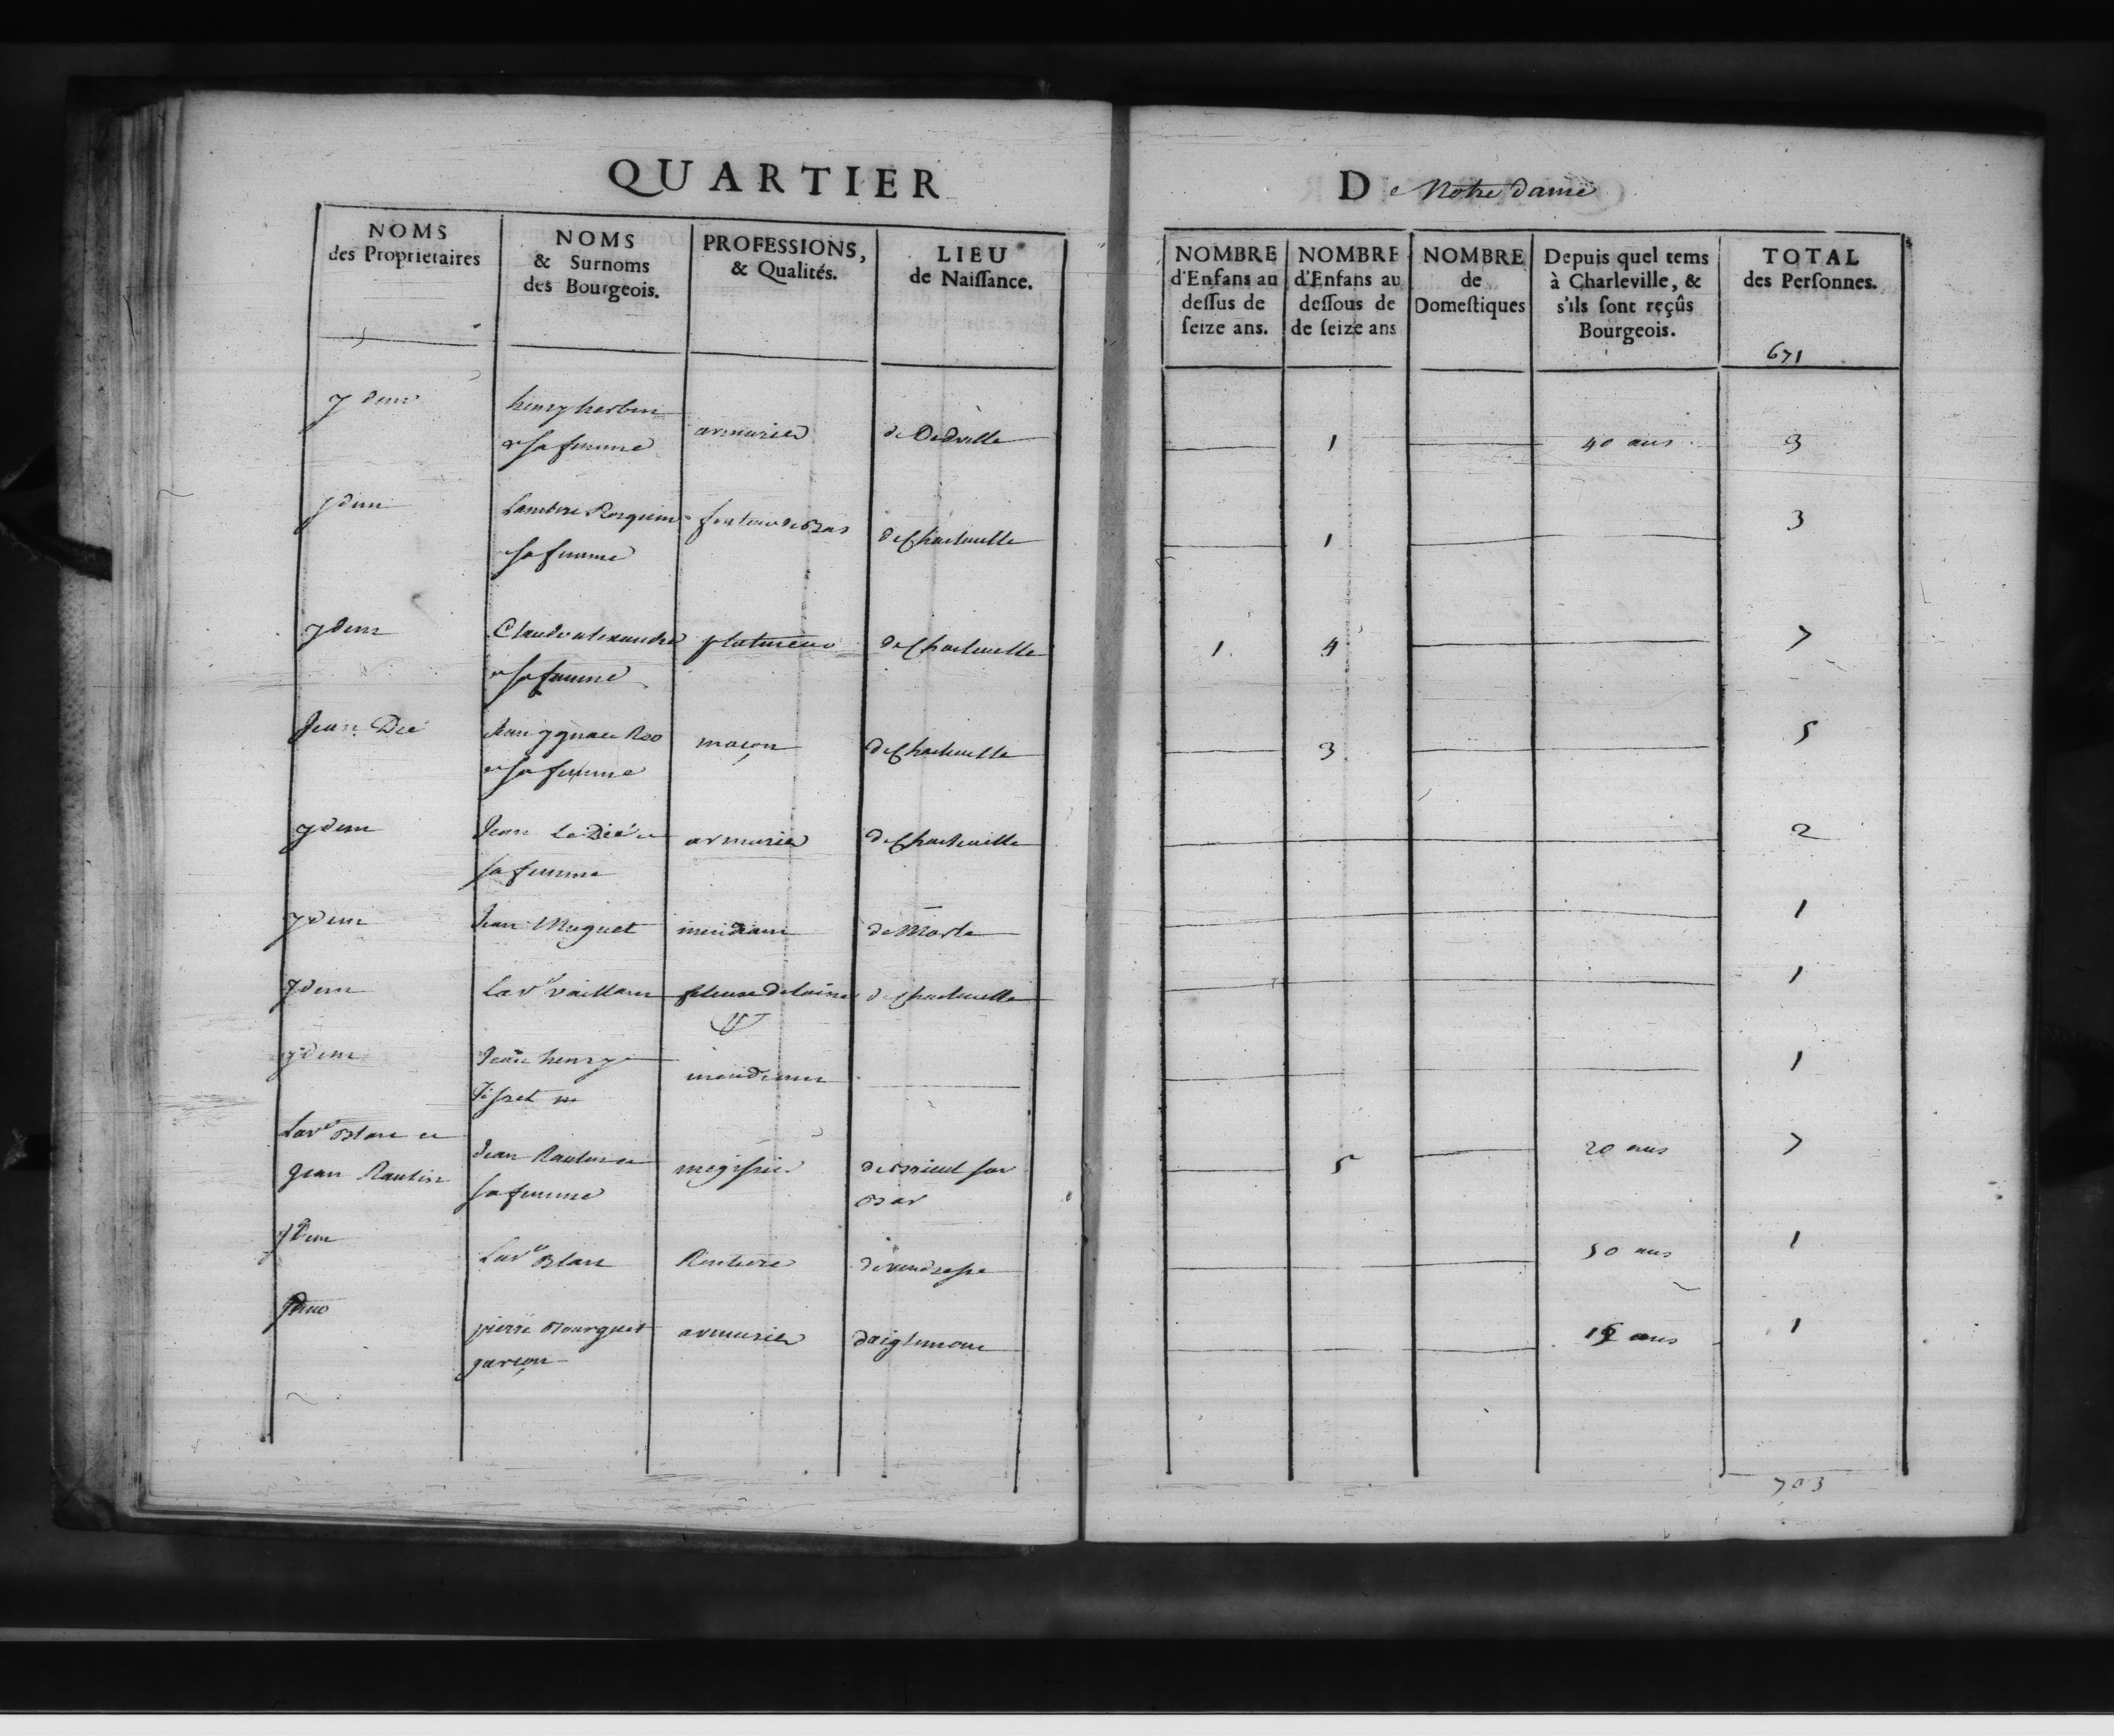 QUARTIER
De Notre dame
NOMS
des Proprietaires
NOMS
& Surnoms
des Bourgeois.
PROFESSIONS,
& Qualités.
LIEU
de Naissance.
NOMBRE
d'Enfans au
dessus de
seize ans.
NOMBRE
d'Enfans au
dessous de
de seize ans
NOMBRE
de
Domestiques
Depuis quel tems
à Charleville, &
s'ils sont reçûs
Bourgeois.
TOTAL
des Personnes.
671
ydem
henry herbin
et sa femme
armurier
1
40 ans
3
ydem
Lambert
et sa femme
de Charleville
1
3
ydem
Claude alexandre
et sa femme
platineur
de Charleville
1
4
7
Jean Dié
Jean ygnace Reo
et sa femme
maçon
de Charleville
3
5
ydem
Jean Le Dié et
sa femme
armurier
de Charleville
2
ydem
Jean Muguet
mendiant
de Marle
1
ydem
La vᵉ vaillant
fileuse de laine
de Charleville
1
ydem
Jean henry
mendiant
1
La vᵉ Blan et
Jean Raulin
Jean Raulin et
sa femme
megissier
Bar
5
20 ans
7
ydem
La vᵉ Blan
Rentiere
de vendresse
50 ans
1
ydem
pierre Bourguet
garçon
armurier
daiglemont
ans
1
703